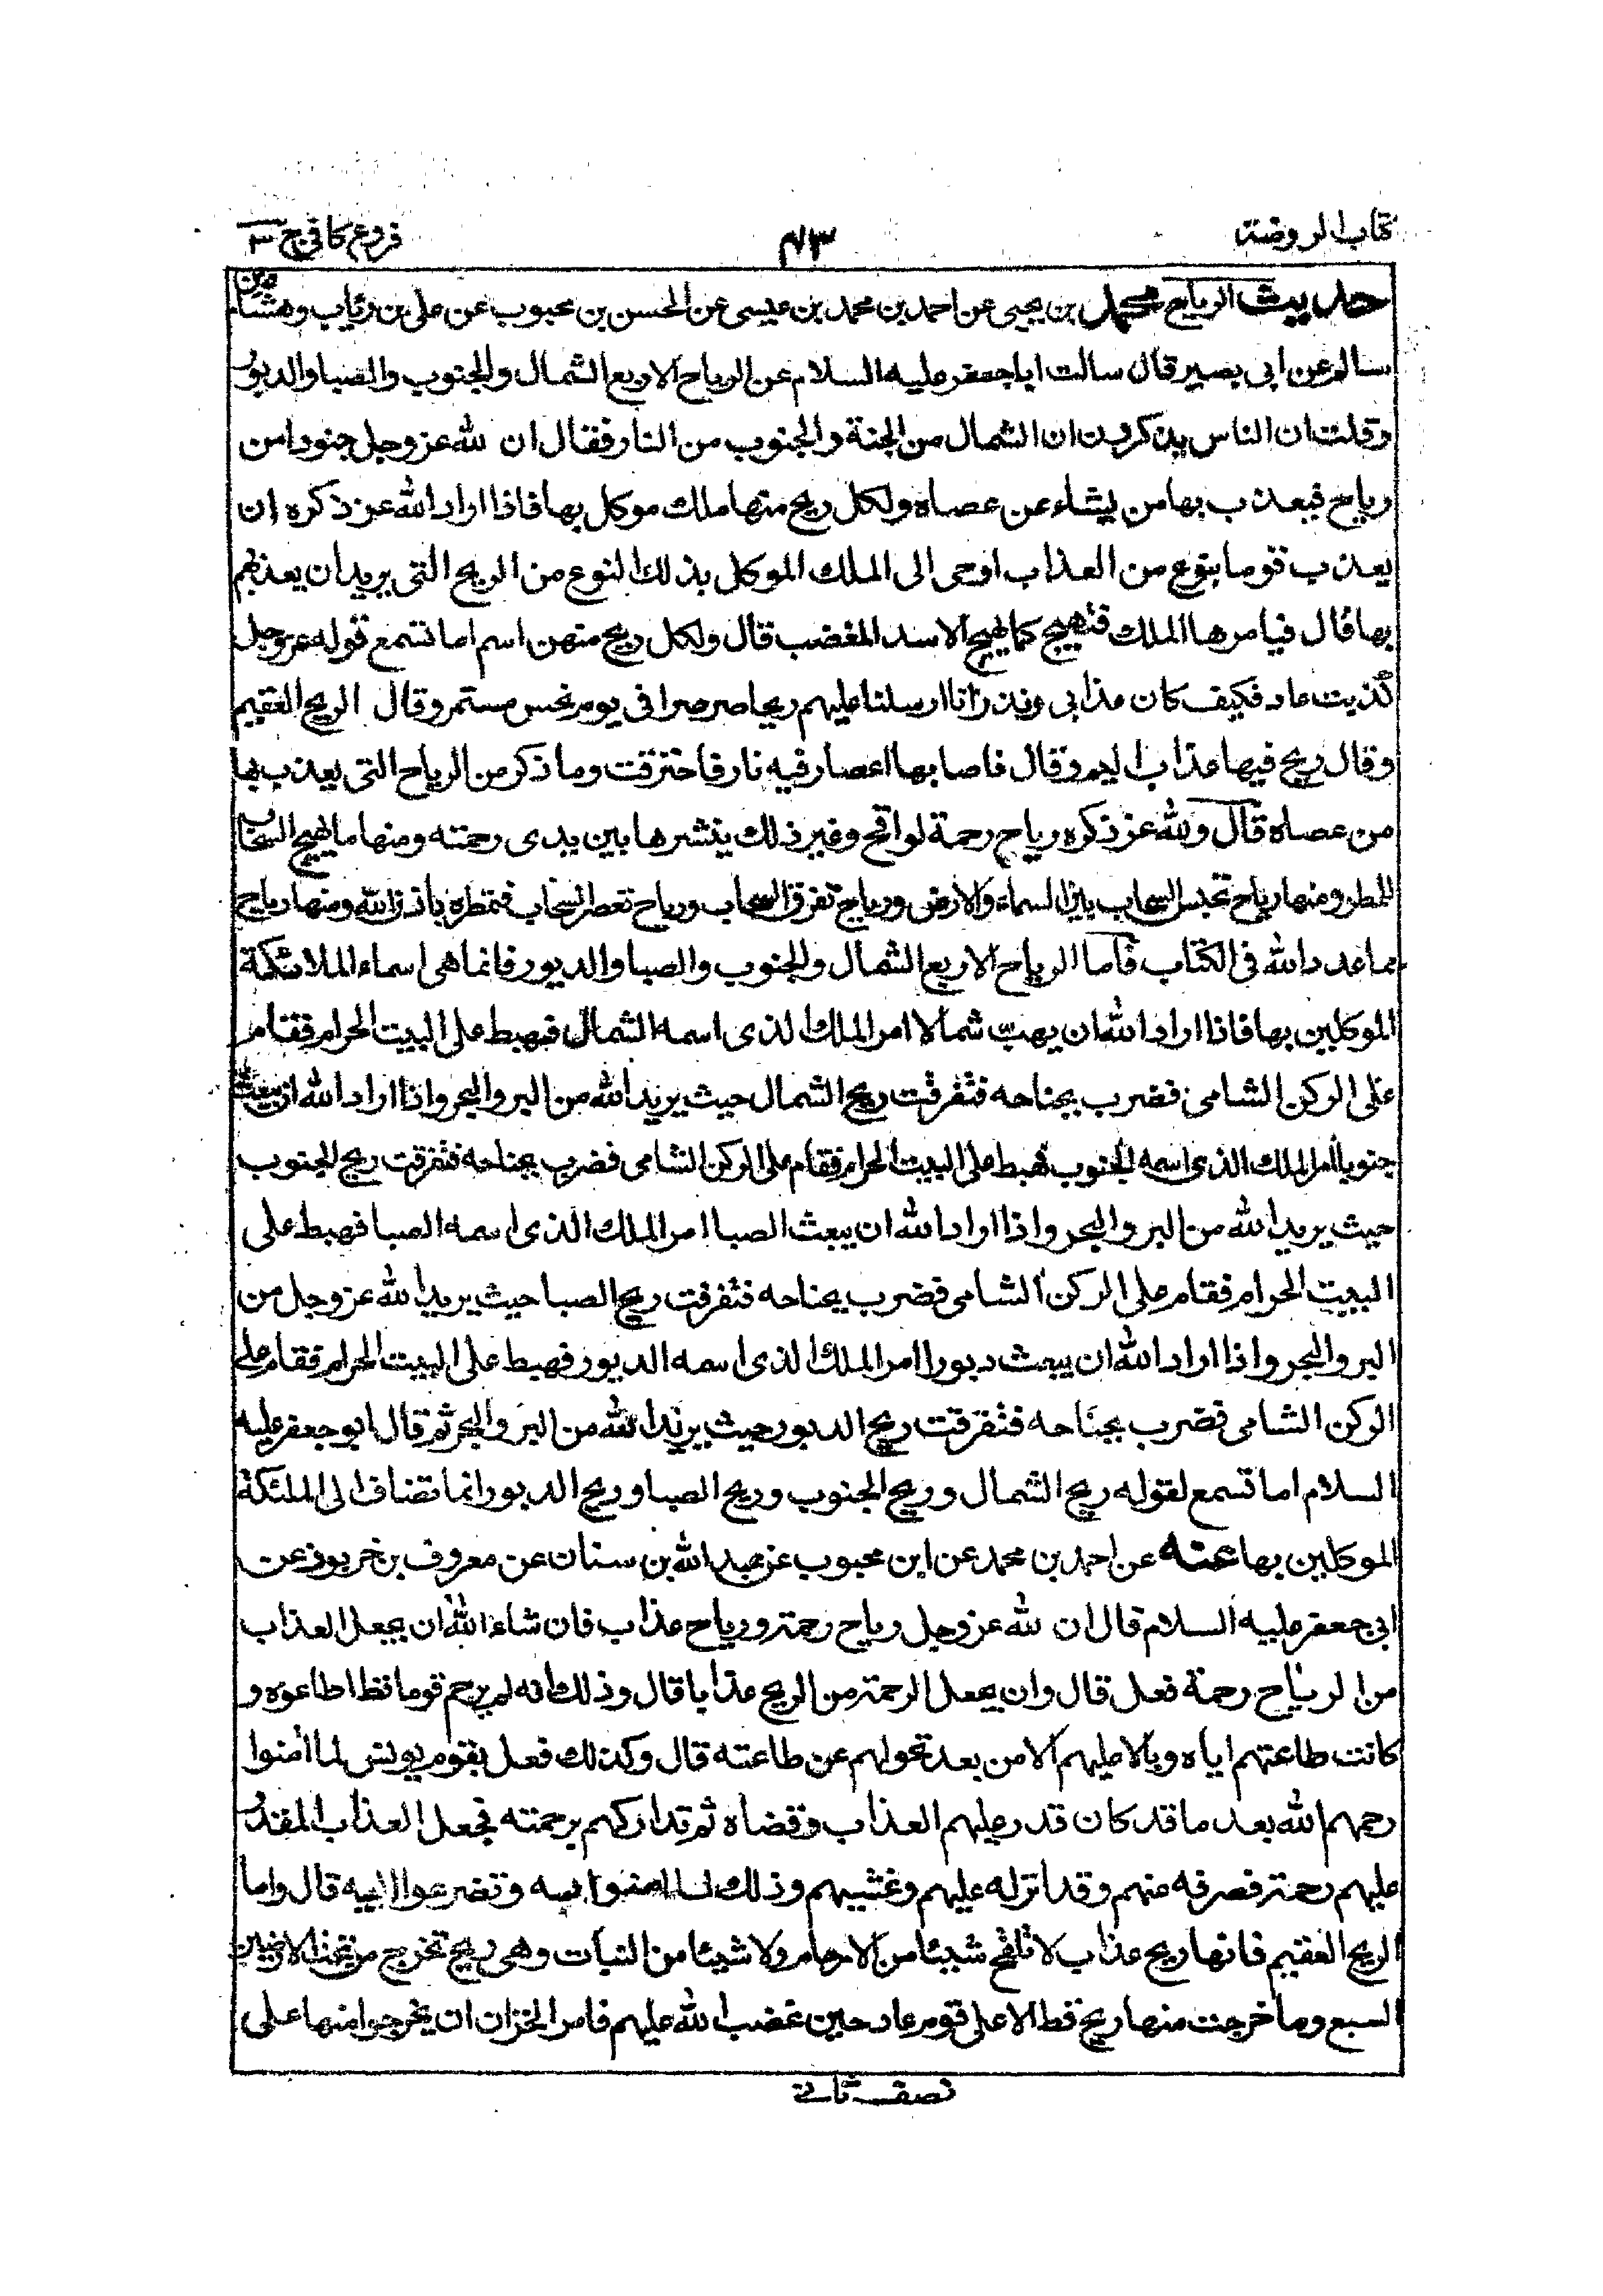 كتاب الروضة
٤٣
فروع كافي ج ٣
حديث الرياح محمد بن يحيى عن احمد بن محمد بن عيسى عن الحسن بن محبوب عن على بن رئاب وهشام بن
سالم عن ابى بصير قال سالت ابا جعفر عليه السلام عن الرياح الاربع الشمال والجنوب والصبا والدبور
وقلت ان الناس يذكرون ان الشمال من الجنة والجنوب من النار فقال ان لله عز وجل جنودا من
رياح فيعذب بها من يشاء عن عصاه ولكل ريح منها ملك موكل بها فاذا اراد الله عز ذكره ان
يعذب قوما بنوع من العذاب اوحى الى الملك الموكل بذلك النوع من الريح التى يريد ان يعذبهم
بها قال فيامرها الملك فتهيج كما يهيج الاسد المغضب قال ولكل ريح منهن اسم اما تسمع قوله عز وجل
كذبت عاد فكيف كان عذابى ونذر انا ارسلنا عليهم ريحا صرصرا فى يوم نحس مستمر وقال الريح العقيم
وقال ريح فيها عذاب اليم وقال فاصابها اعصار فيه نار فاحترقت وما ذكر من الرياح التى يعذب بها
من عصاه قال ولله عز ذكره رياح رحمة لواقح وغير ذلك ينشرها بين يدى رحمته ومنها ما يهيج السحاب
للمطر ومنها رياح تحبس السحاب بين السماء والارض ورياح تفرق السحاب ورياح تعصر السحاب فتمطره باذن الله ومنها رياح
مما عدد الله فى الكتاب فاما الرياح الاربع الشمال والجنوب والصبا والدبور فانما هى اسماء الملائكة
الموكلين بها فاذا اراد الله ان يهبّ شمالا امر الملك الذى اسمه الشمال فيهبط على البيت الحرام فقام
على الركن الشامى فضرب بجناحه فتفرقت ريح الشمال حيث يريد الله من البر والبحر واذا اراد الله ان يبعث
جنوبا امر الملك الذى اسمه الجنوب فهبط على البيت الحرام فقام على الركن الشامى فضرب بجناحه فتفرقت ريح الجنوب
حيث يريد الله من البر والبحر واذا اراد الله ان يبعث الصبا امر الملك الذى اسمه الصبا فهبط على
البيت الحرام فقام على الركن الشامى فضرب بجناحه فتفرقت ريح الصبا حيث يريد الله عز وجل من
البر والبحر واذا اراد الله ان يبعث دبورا امر الملك الذى اسمه الدبور فهبط على البيت الحرام فقام على
الركن الشامى فضرب بجناحه فتفرقت ريح الدبور حيث يريد الله من البر والبحر ثم قال ابو جعفر عليه
السلام اما تسمع لقوله ريح الشمال وريح الجنوب وريح الصبا وريح الدبور انما تضاف الى الملئكة
الموكلين بها عنه عن احمد بن محمد عن ابن محبوب عن عبد الله بن سنان عن معروف بن خربوذ عن
ابى جعفر عليه السلام قال ان لله عز وجل رياح رحمة ورياح عذاب فان شاء الله ان يجعل العذاب
من الرياح رحمة فعل قال وان يجعل الرحمة من الريح عذابا قال وذلك انه لم يرحم قوما قط اطاعوه و
كانت طاعتهم اياه وبالا عليهم الا من بعد تحولهم عن طاعته قال وكذلك فعل بقوم يونس لما امنوا
رحمهم الله بعد ما قد كان قدر عليهم العذاب وقضاه ثم تداركهم برحمته فجعل العذاب المقدر
عليهم رحمة فصرفه عنهم وقد انزله عليهم وغشيهم وذلك لما امنوا به وتضرعوا اليه قال واما
الريح العقيم فانها ريح عذاب لا تلقح شيئا من الارحام ولا شيئا من النبات وهى ريح تخرج من تحت الارضين
السبع وما خرجت منها ريح قط الا على قوم عاد حين غضب الله عليهم فامر الخزان ان يخرجوا منها على
نصف ثانى